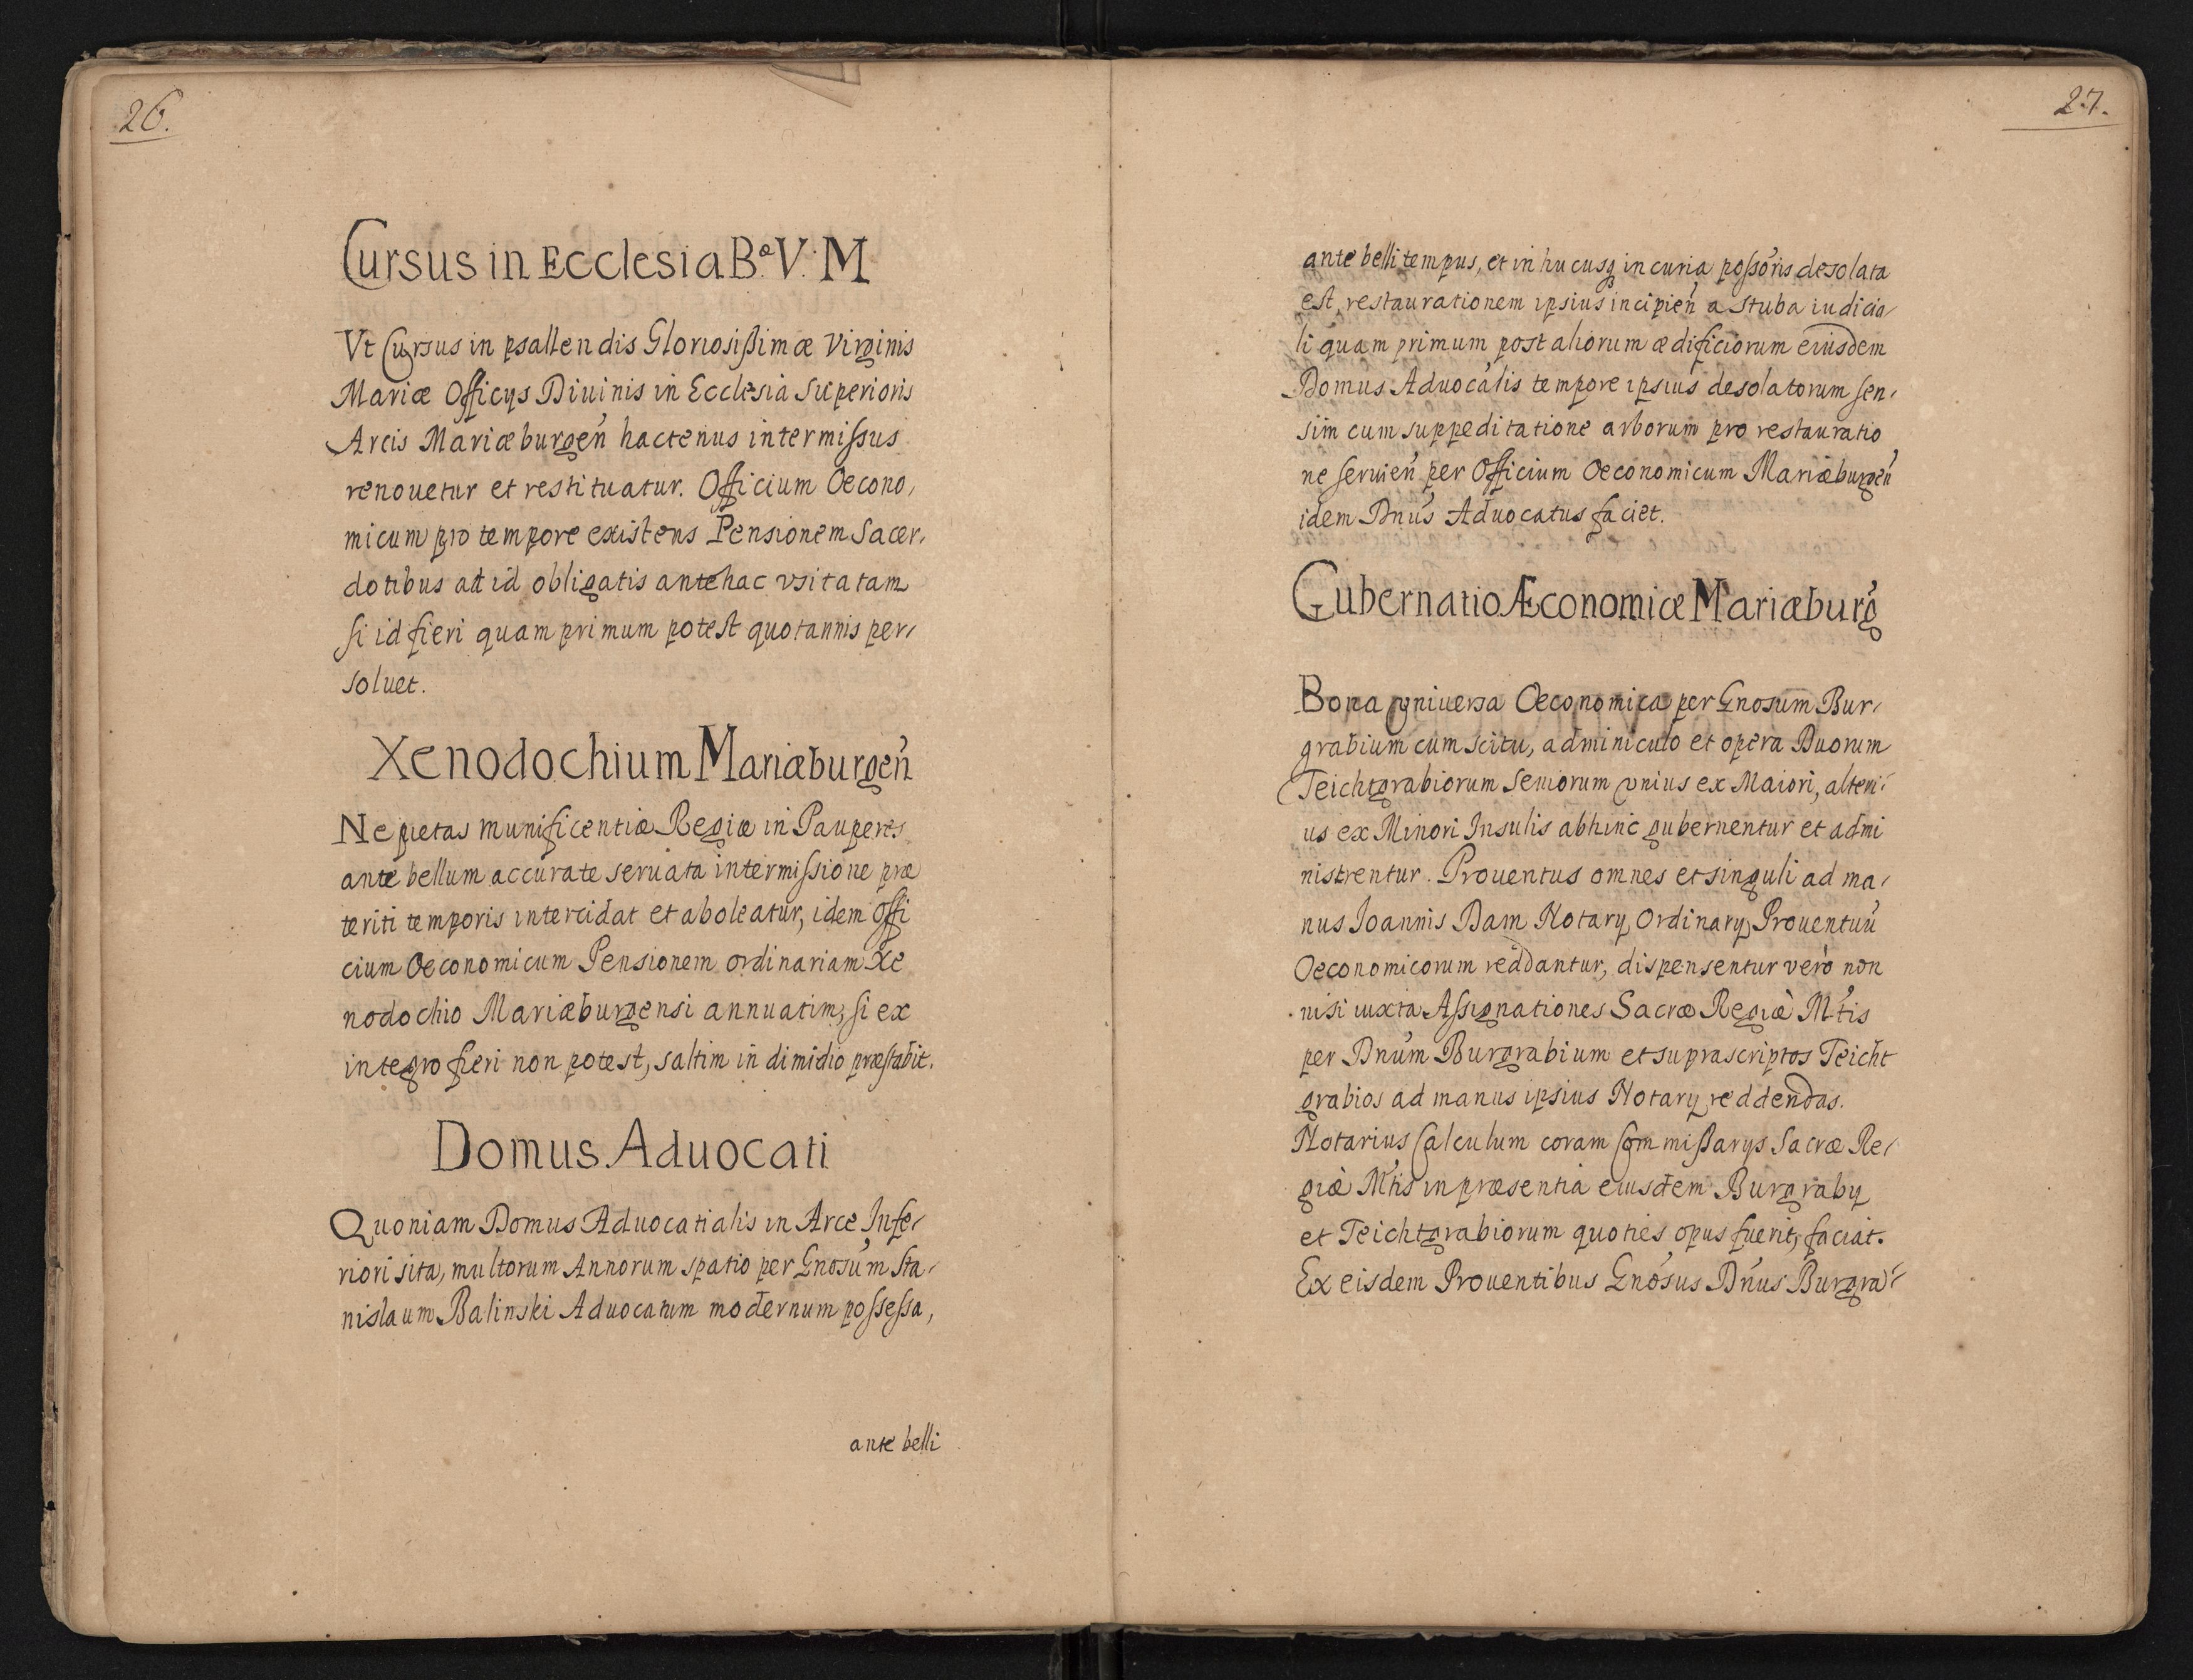 26.
Cursus in Ecclesia B.ᵃ V. M
Vt Cursus in psallendis Gloriosißimæ Virginis
Mariæ Officys Diuinis in Ecclesia Superioris
Arcis Mariæburgen̄ hactenus intermissus
renouetur et restituatur. Officium Oecono,
micum pro tempore existens Pensionem Sacer,
dotibus ad id obligatis antehac vsitatam
si id fieri quam primum potest quotannis per,
soluet.
Xenodochium Mariæburgen̄
Ne pietas munificentiæ Regiæ in Pauperes
ante bellum accurate seruata intermissione præ
teriti temporis intercidat et aboleatur, idem Offi
cium Oeconomicum Pensionem ordinariam Xe
nodochio Mariæburgensi annuatim, si ex
integro fieri non potest, saltim in dimidio præstabit.
Domus Aduocati
Quoniam Domus Aduocatialis in Arce Infe,
riori sita, multorum Annorum spatio per Gnosum Sta,
nislaum Balinski Aduocatum modernum possessa,
ante belli
27.
ante belli tempus, et in hucusq̨ incuria possoris desolata
est, restaurationem ipsius incipien̄ a stuba iudicia,
li quam primum post aliorum ædificiorum eiusdem
Domus Aduocalis tempore ipsius desolatorum sen,
sim cum suppeditatione arborum pro restauratio
ne seruien̄ per Officium Oeconomicum Mariæburgen̄
idem Dnus Aduocatus faciet.
Gubernatio Æconomiæ Mariæburg
Bona vniuersa Oeconomica per Gnosum Bur,
grabium cum scitu, adminiculo et opera Duorum
Teichtgrabiorum Seniorum vnius ex Maiori, alteri,
us ex Minori Insulis abhinc gubernentur et admi
nistrentur. Prouentus omnes et singuli ad ma,
nus Joannis Dam Notary Ordinary Prouentuū
Oeconomicorum reddantur, dispensentur verò non
nisi iuxta Assignationes Sacræ Regiæ Mtis
per Dnum Burgrabium et suprascriptos Teicht
grabios ad manus ipsius Notary reddendas.
Notarius Calculum coram Commißarys Sacræ Re,
giæ Mtis in præsentia eiusdem Burgraby
et Teichtgrabiorum quoties opus fuerit, faciat.
Ex eisdem Prouentibus Gnosus Dnus Burgra,